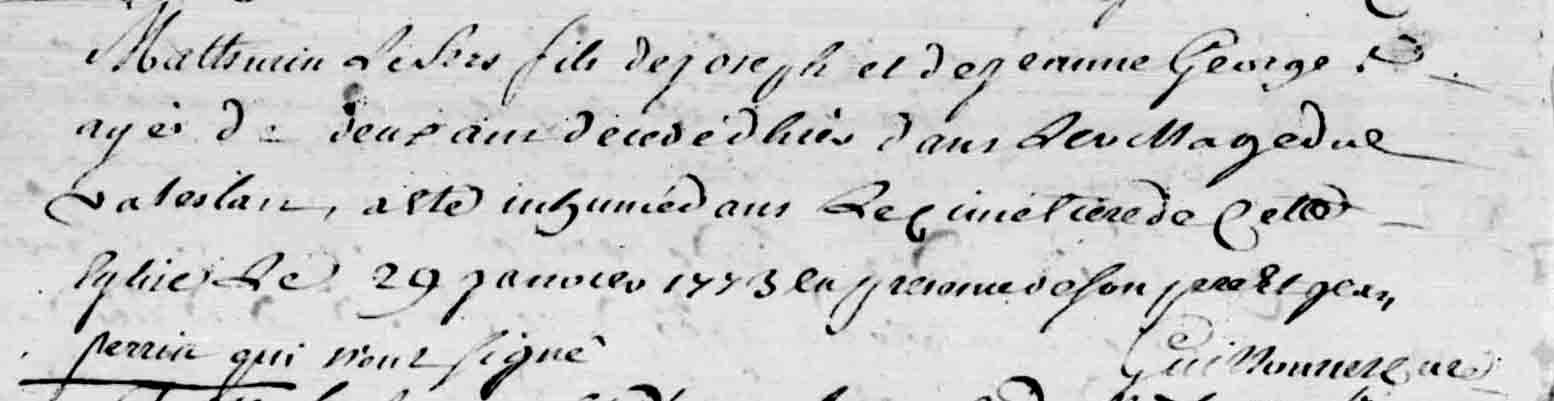 Mathurin Lesers fils de joseph et de jeanne George
ayéz de deux ans decedé d'hier dans Le village de
a eté inhumé dans Le cimetiere de Cette
Eglise Le 29 janvier 1773 en presence de son pere et jean
perrin qui n'ont signé